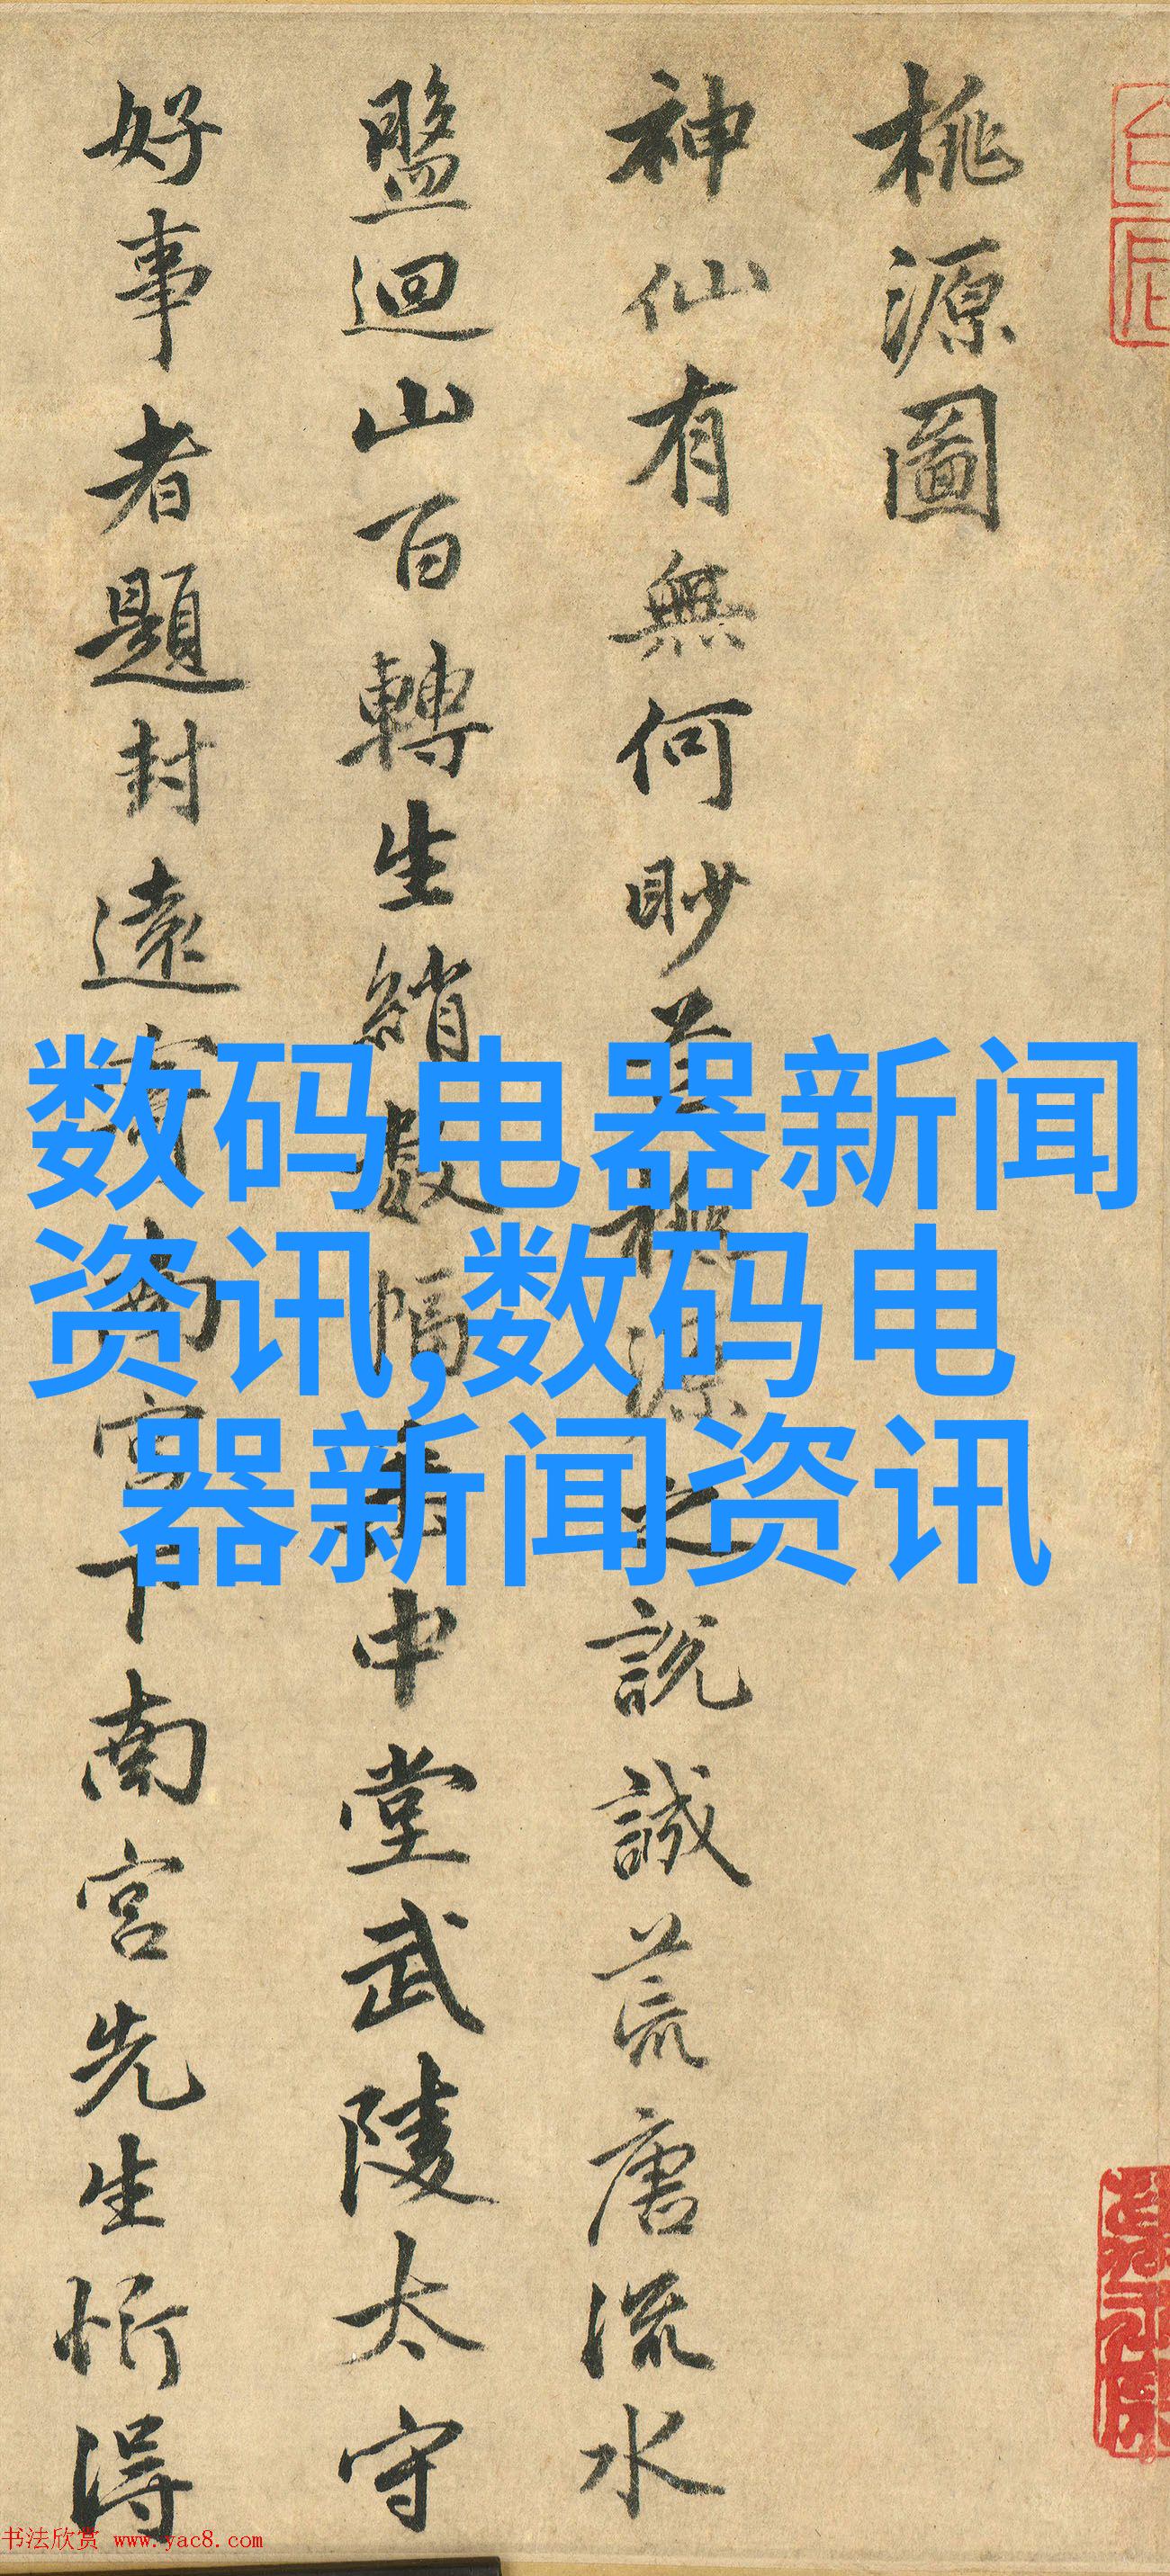 桃源圖
神仙有無何眇芒桃源之說誠荒唐流水
盤迴山百轉生綃數幅垂中堂武陵太守
好事者題封遠寄南宮下南宮先生忻得
数码电器新闻
资讯,数码电
器新闻资讯
书法欣赏 www.yac8.com